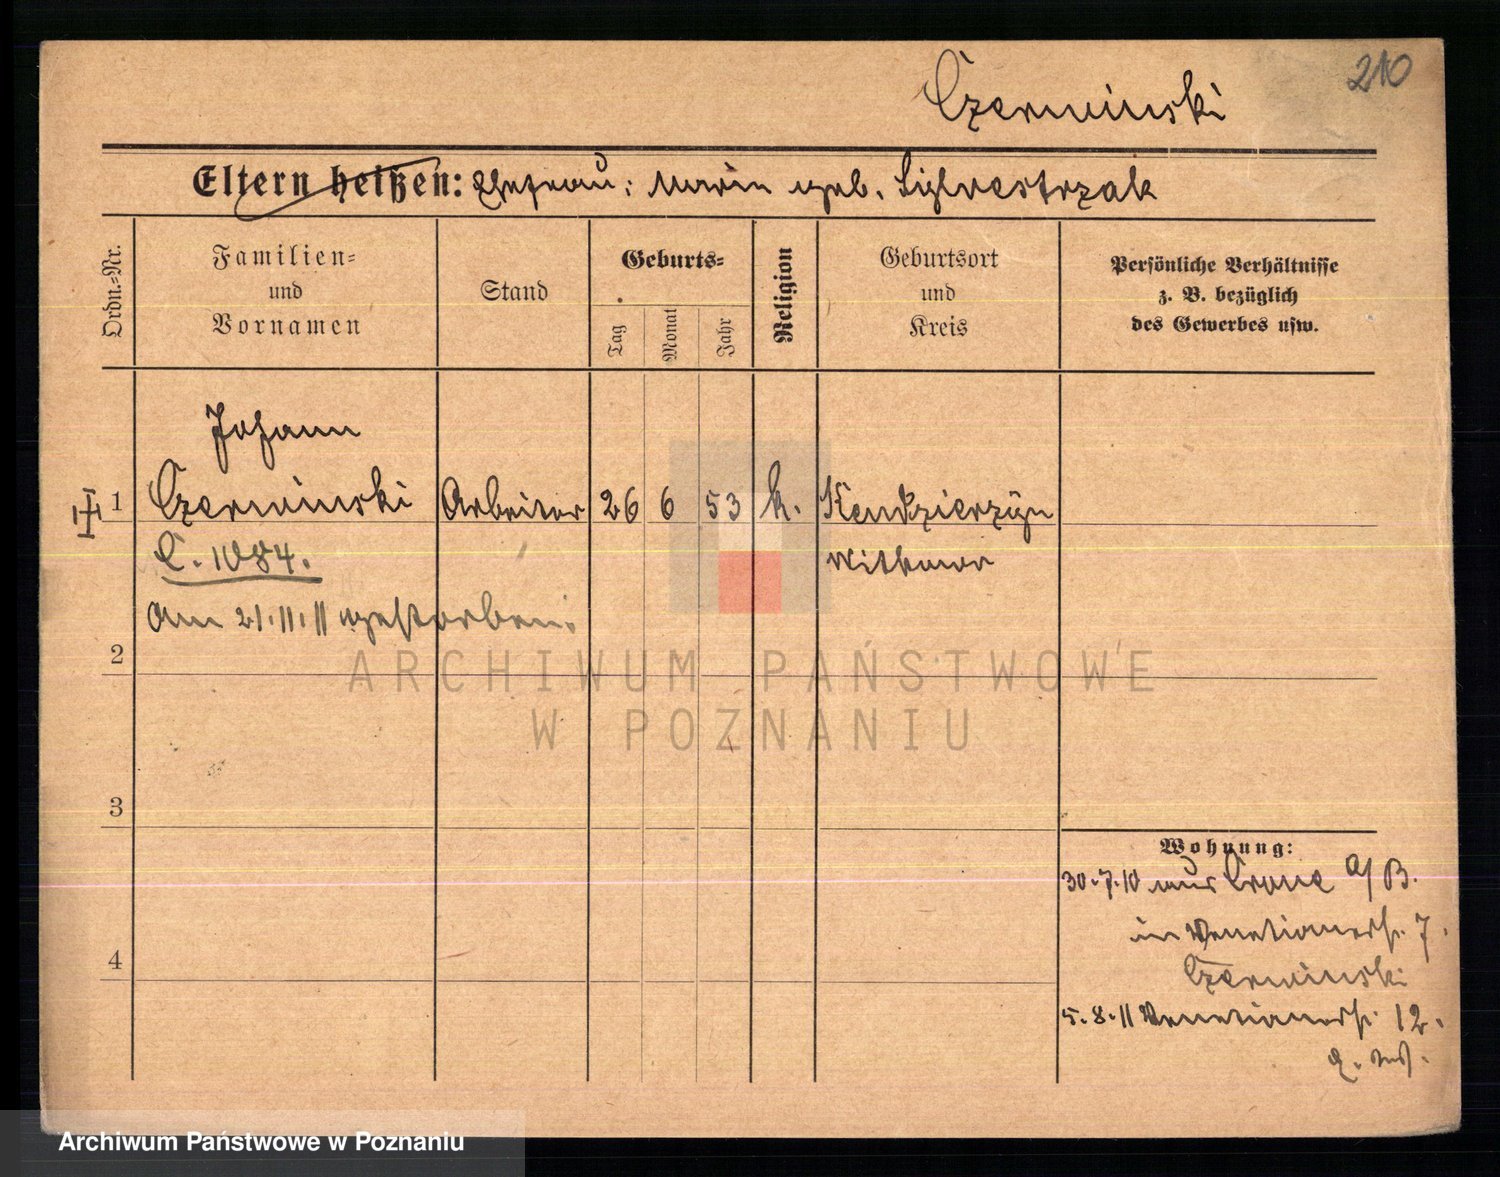 210
Czerwinski
Eltern heißen: Ehefrau: Maria geb. Sylvestrzak
Ordn.=Nr.
Familien=
und
Vornamen
Stand
Geburts=
Tag
Monat
Jahr
Religion
Geburtsort
und
Kreis
Persönliche Verhältnisse
z. B. bezüglich
des Gewerbes usw.
Johann
1 Czerwinski Arbeiter 26 6 53 k. Kendzierzyn
C. 1084. Witkowo
Am 21.11.11 gestorben.
2
ARCHIWUM PAŃSTWOWE
W POZNANIU
3
Wohnung:
30.7.10 aus Crone a/B.
in Venetianerstr. 7.
Czerwinski
4
5.8.11 Venetianerstr. 12.
Archiwum Państwowe w Poznaniu